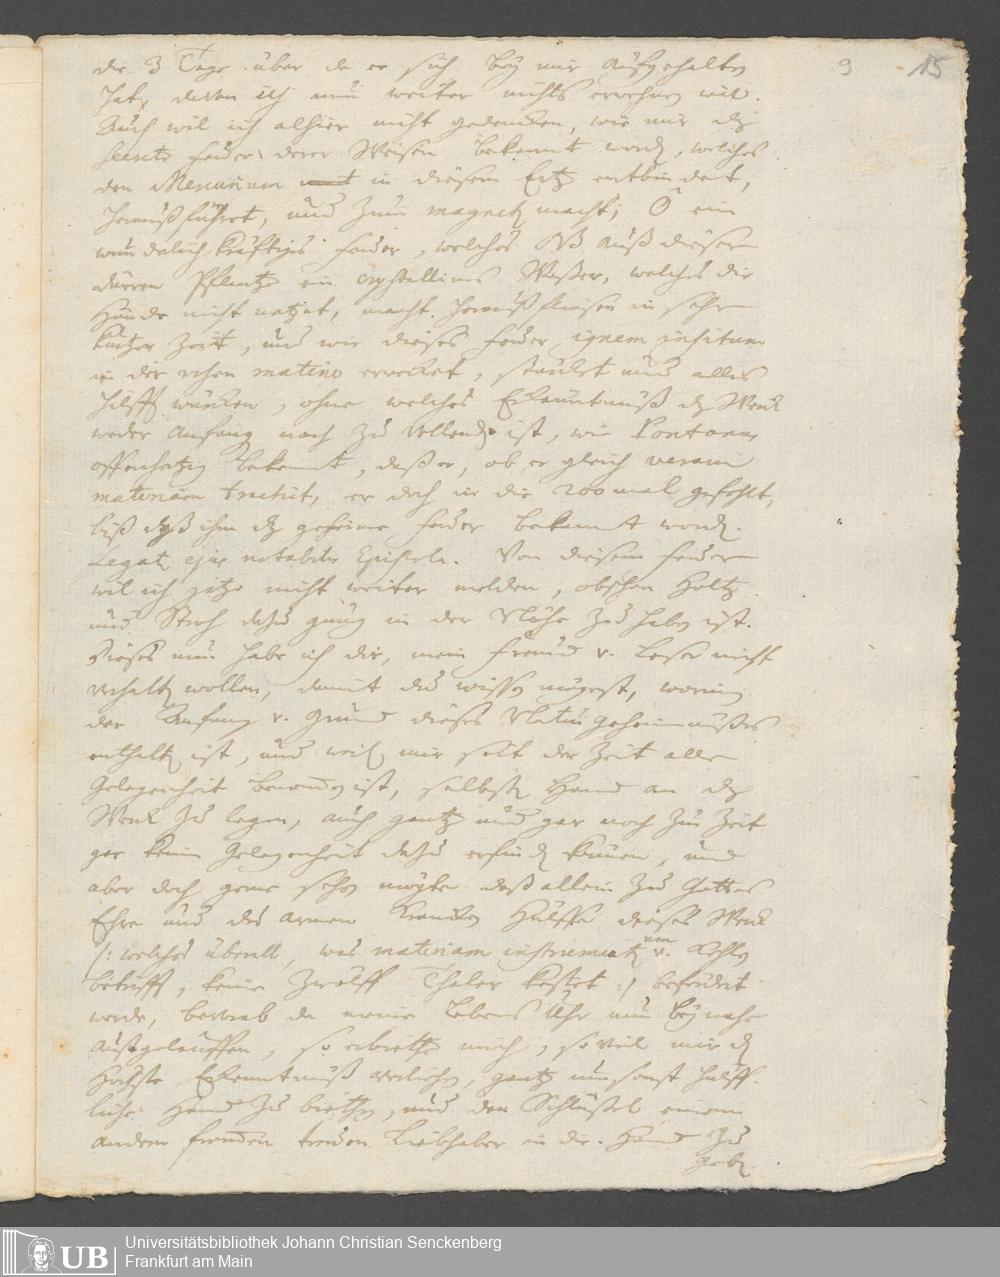 9 15
die 3 Tage über da er sich bey mir aufgehalten
hat, davon ich nun weiter nichts erwehnen wil.
Auch wil ich alhier nicht gedencken, wie mir das
feuer derer Weisen bekannt word, welches
den Mercurium in diesem Ertz entbindet,
herauß führet, und zum magnet macht; O ein
wunderlich kräfftiges feuer, welches auß diesem
dürren Pflantz ein crystallines Waßer, welches die
Hände nicht netzet, macht herauß fliesen in sehr
kurtzer Zeit, und wie dieses feuer, ignem insitum
in der materie erwecket, stärcket und alles
hilfft würcken, ohne welches Erkenntnuß das Werck
weder Anfang noch zu vollend ist, wie Pontanus
offenhertzig bekennt, daß er, ob er gleich veram
materiam tractirt, er doch in die 200 mal gefehlt,
biß daß ihm das geheime feuer bekannt word.
Legat ejus notabilis Epistola. Von diesem feuer
wil ich jetzo nicht weiter melden, obschon Holtz
und Stroh dazu gnug in der Nähe zu haben ist.
Dieses nun habe ich dir, mein Freund v. Leser nicht
verhalten wollen, damit du wissen mögest, worinn
der Anfang v. Grund dieses Natur geheimnußes
enthalten ist, und weil mir seit der Zeit alle
Gelegenheit benommen ist, selbsten Hand an das
Werck zu legen, auch gantz und gar noch zur Zeit
gar keine Gelegenheit dazu erfinden können, und
aber doch gerne sehen mögte daß allein zu Gottes
Ehre und des armen Krancken Hülffe dieses Werck
/: welches überall, was materiam instrumenta v. Kohlen
betrifft, keine zwölff Thaler kostet :/ befördert
werde, da meine Lebens Uhr nun bey nahe
außgelauffen, so erbiethe mich, so viel mir der
Höchste Erkenntnuß verliehen, gantz umsonst hülff-
liche Hand zu biethen, und den Schlüßel einem
andern frommen treuen Liebhaber in die Hand zu
geben
UB
Universitätsbibliothek Johann Christian Senckenberg
Frankfurt am Main